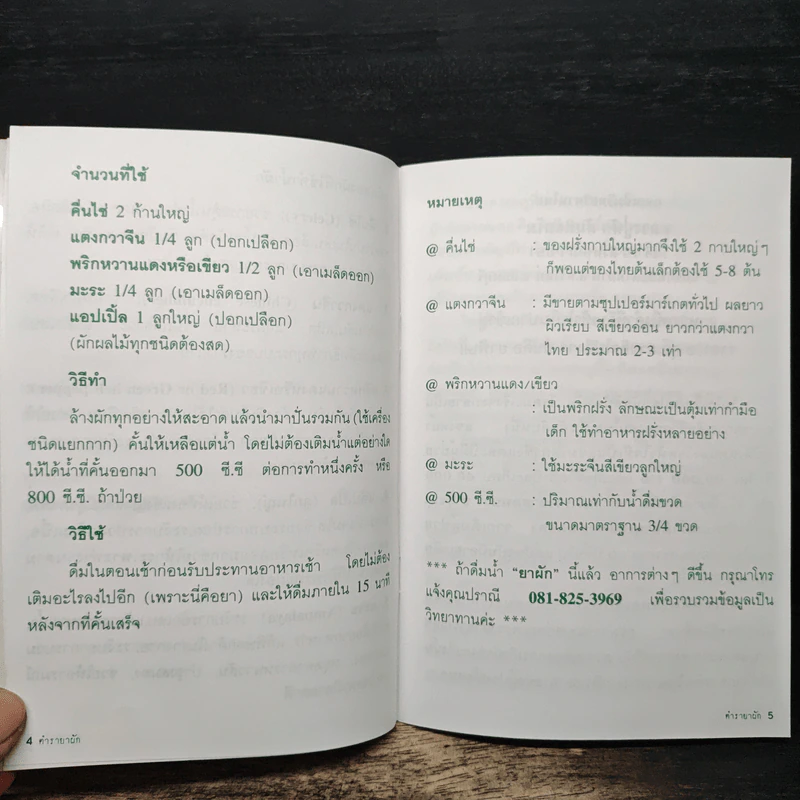 จำนวนที่ใช้
คื่นไช่ 2 ก้านใหญ่
แตงกวาจีน 1/4 ลูก (ปอกเปลือก)
พริกหวานแดงหรือเขียว 1/2 ลูก (เอาเมล็ดออก)
มะระ 1/4 ลูก (เอาเมล็ดออก)
แอปเปิ้ล 1 ลูกใหญ่ (ปอกเปลือก)
(ผักผลไม้ทุกชนิดต้องสด)
วิธีทำ
ล้างผักทุกอย่างให้สะอาด แล้วนำมาปั่นรวมกัน (ใช้เครื่อง
ชนิดแยกกาก) คั้นให้เหลือแต่น้ำ โดยไม่ต้องเติมน้ำแต่อย่างใด
ให้ได้น้ำที่คั้นออกมา 500 ซี.ซี ต่อการทำหนึ่งครั้ง หรือ
800 ซี.ซี. ถ้าป่วย
วิธีใช้
ดื่มในตอนเช้าก่อนรับประทานอาหารเช้า โดยไม่ต้อง
เติมอะไรลงไปอีก (เพราะนี่คือยา) และให้ดื่มภายใน 15 นาที
หลังจากที่คั้นเสร็จ
4 ตำรายาผัก
หมายเหตุ
@ คื่นไช่ : ของฝรั่งกาบใหญ่มากจึงใช้ 2 กาบใหญ่ๆ
ก็พอแต่ของไทยต้นเล็กต้องใช้ 5-8 ต้น
@ แตงกวาจีน : มีขายตามซุปเปอร์มาร์เกตทั่วไป ผลยาว
ผิวเรียบ สีเขียวอ่อน ยาวกว่าแตงกวา
ไทย ประมาณ 2-3 เท่า
@ พริกหวานแดง/เขียว
: เป็นพริกฝรั่ง ลักษณะเป็นตุ้มเท่ากำมือ
เด็ก ใช้ทำอาหารฝรั่งหลายอย่าง
@ มะระ : ใช้มะระจีนสีเขียวลูกใหญ่
@ 500 ซี.ซี. : ปริมาณเท่ากับน้ำดื่มขวด
ขนาดมาตราฐาน 3/4 ขวด
*** ถ้าดื่มน้ำ "ยาผัก" นี้แล้ว อาการต่างๆ ดีขึ้น กรุณาโทร
แจ้งคุณปราณี 081-825-3969 เพื่อรวบรวมข้อมูลเป็น
วิทยาทานค่ะ ***
ตำรายาผัก 5